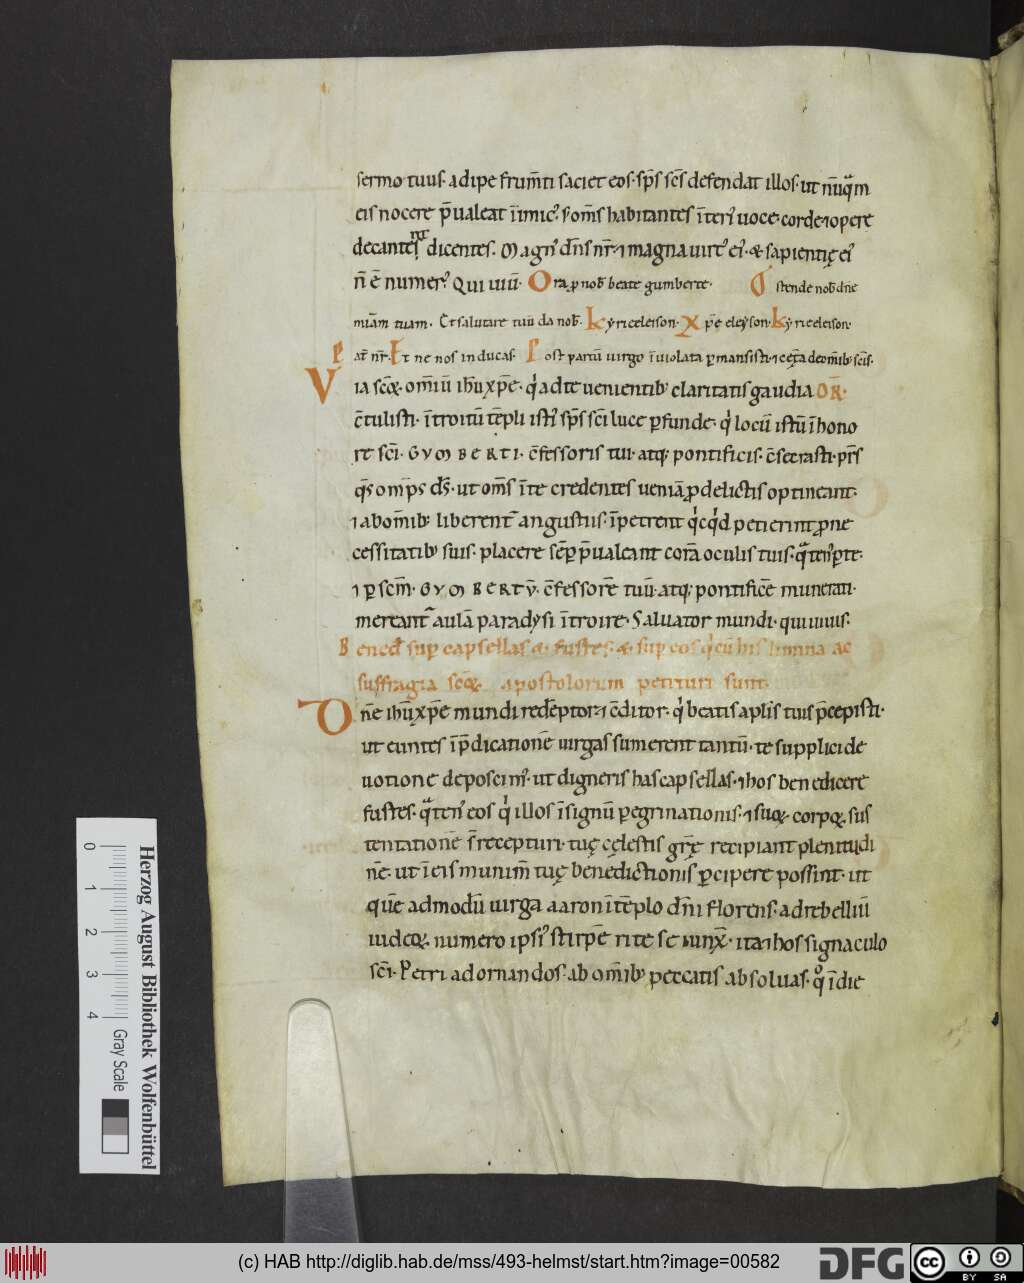 sermo tuus. adipe frum̄ti saciet eos. sp̄s sc̄s defendat illos. ut nūqͣm
eis nocere p̄ualeat īimic᷒. s; om̄s habitantes ī teri᷒ uoce. corde. ⁊ opere
decantent dicentes. Magn᷒ dn̄s nr̄. ⁊ magna uirt᷒ ei᷒. & sapientię ei᷒
n̄ ē numer᷒. Qui uiū. Ora ꝓ nob̄ beate gumberte. Ostende nob̄ dn̄e
miām tuam. Et salutare tuū da nob̄. Kyrieeleison. Xp̄e eleyson. Kyrieeleison.
Pat̄ nr̄. Et ne nos inducas. Post partū uirgo īuiolata ꝑmansisti. ⁊ cet̄a de om̄ib; sc̄is.
Via sc̄oꝝ. omīū ih̄u xp̄e. qͥ ad te uenientib; claritatis gaudia OR̄.
c̄tulisti. ītroitū tēpli isti᷒ sp̄s sc̄i luce ꝑfunde. qͥ locū istū ī hono
re sc̄i. GVMBERTI. c̄fessoris tui. atq; pontificis. c̄secrasti. pr̄s
qs̄ omp̄s ds̄. ut om̄s ī te credentes ueniā ꝓ delictis optineant.
⁊ ab om̄ib; liberent᷒ angustiis. īpetrent qͥcqͥd petierint ꝓ ne
cessitatib; suis. placere sēꝑ p̄ualeant corā oculis tuis. qͣten᷒ ꝑ te.
⁊ ꝑ sc̄m. GVMBERTV̄. c̄fessorē tuū. atq; pontificē munerati.
mereant᷒ aulā paradysi ītroire. Saluator mundi. qui uiuis.
Bened̄ sup̄ capsellas &. fustes. &. sup̄ eos qͥ cū his limina ac
suffragia sc̄oꝝ apostolorum petituri sunt.
Dn̄e ih̄u xp̄e mundi redēptor. ⁊ c̄ditor. qͥ beatis aplīs tuis p̄cepisti.
ut euntes ī p̄dicationē uirgas sumerent tantū. te supplici de
uotione deposcim᷒. ut digneris has capsellas. ⁊ hos benedicere
fustes. qͣten᷒ eos qͥ illos ī signū ꝑegrinationis. ⁊ suoꝝ corpoꝝ sus
tentationē s̄ recepturi. tuę cęlestis gr̄ę recipiant plenitudi
nē. ut ī eis munim̄ tuę benedictionis ꝑcipere possint. ut
quē admodū uirga aaron ī tēplo dn̄i florens. ad rebelliū
iudeoꝝ. numero ipsi᷒ stirpē rite seiunx̄. ita ⁊ hos signaculo
sc̄i. Petri adornandos. ab om̄ib; peccatis absoluas. qͦ ī die
0
1
2
3
4
Gray Scale
Herzog August Bibliothek Wolfenbüttel
(c) HAB http://diglib.hab.de/mss/493-helmst/start.htm?image=00582
DFG
cc
BY SA